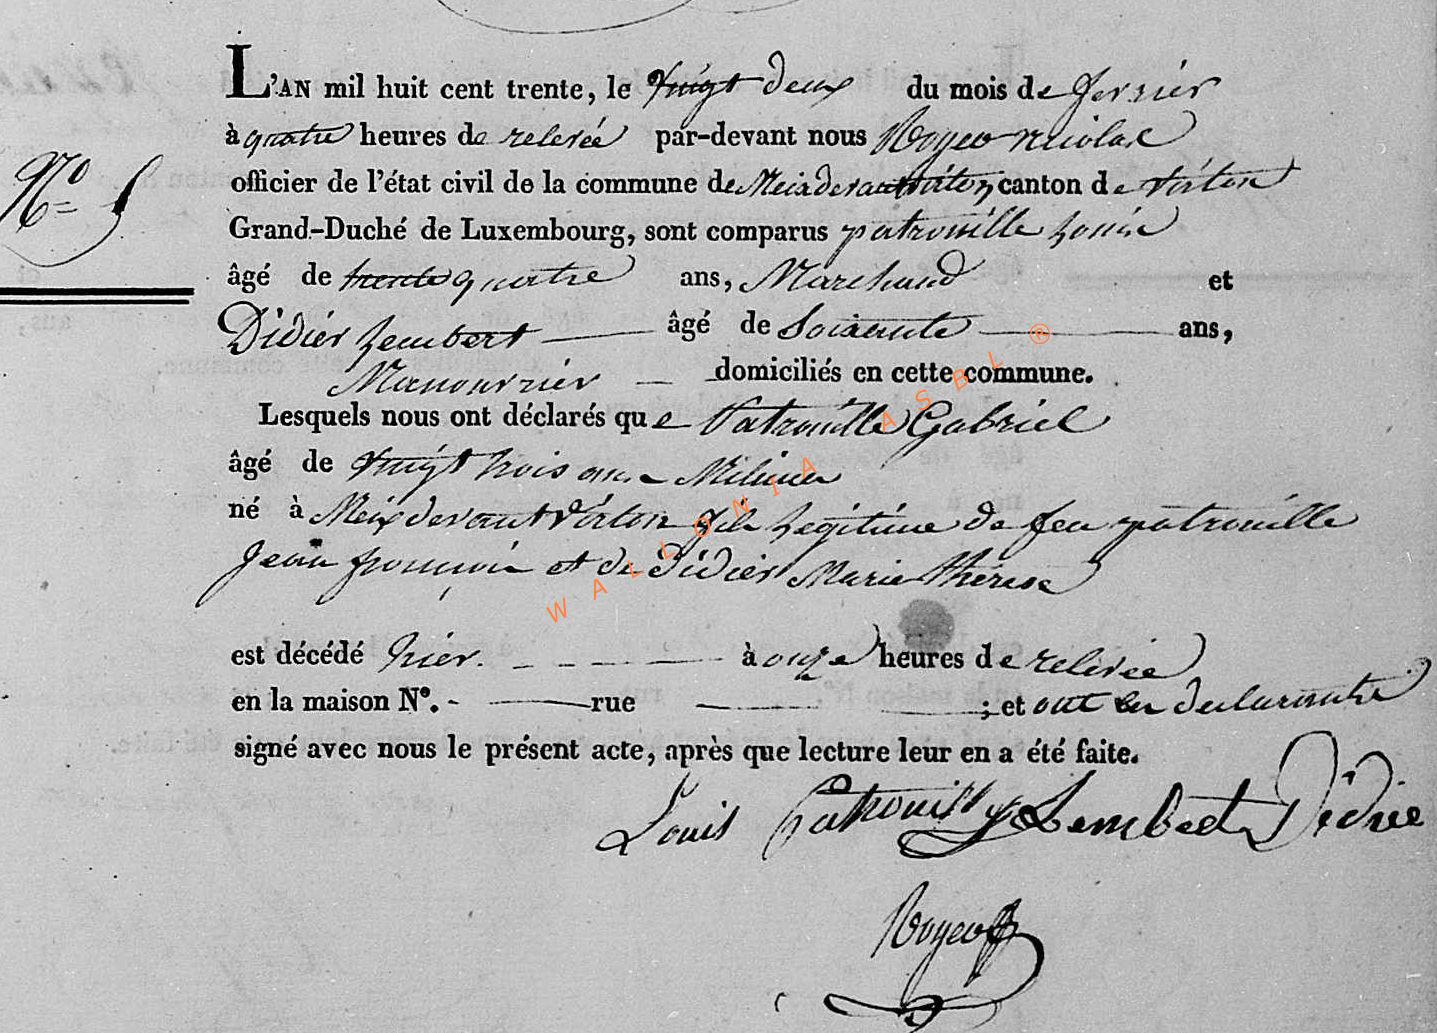 L'AN mil huit cent trente, le vingt deux du mois de fevrier
à quatre heures de relevée par-devant nous Royer nicolas
N° 5
officier de l'état civil de la commune de Meix devant virton, canton de virton
Grand-Duché de Luxembourg, sont comparus patrouille Louis
âgé de trente quatre ans, Marchand et
Didier Lembert âgé de Soixante ans,
Manouvrier domiciliés en cette commune.
Lesquels nous ont déclarés que Patrouille Gabriel
âgé de vingt trois ans Milicien
né à Meix devant Virton fils Legitime de feu patrouille
Jean françois et de Didier Marie thérese
est décédé hier. à onze heures de relevée
en la maison N°. rue ; et ont les declarants
signé avec nous le présent acte, après que lecture leur en a été faite.
Louis Patrouilly Lembert Didie
Royer
WALLONIA ASBL ®